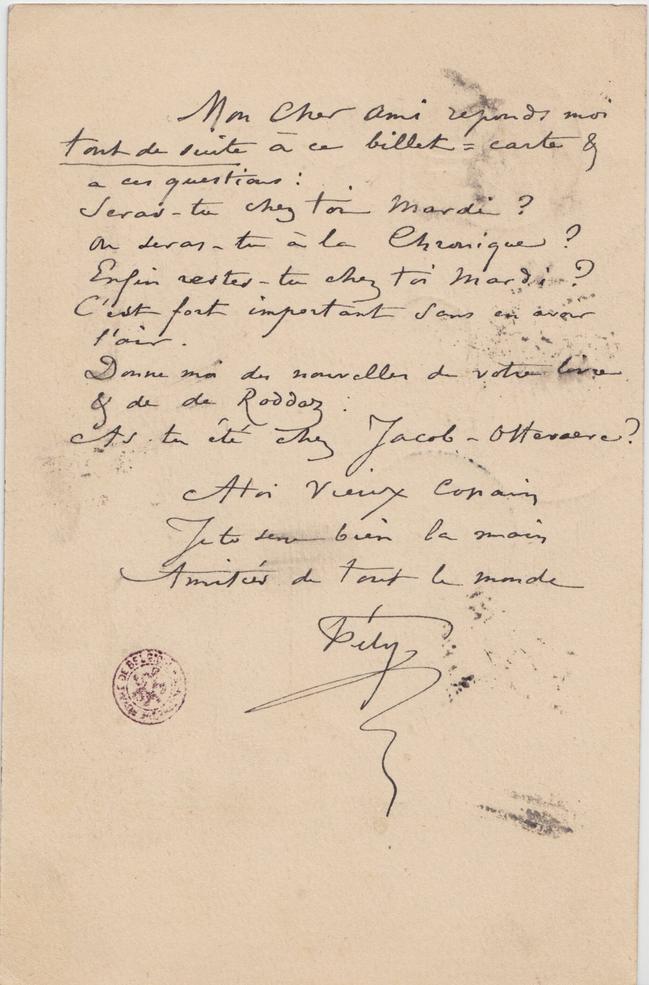 Mon Cher Ami reponds moi
tout de suite à ce billet = carte &
a ces questions :
Seras-tu chez toi Mardi ?
ou seras-tu à la Chronique ?
Enfin restes-tu chez toi Mardi ?
C'est fort important sans en avoir
l'air.
Donne moi des nouvelles de votre livre
& de de Roddaz.
As-tu été chez Jacob-
A toi Vieux Copain
Je te serre bien la main
Amitiés de tout le monde
Fély
ROYALE DE BELGIQUE